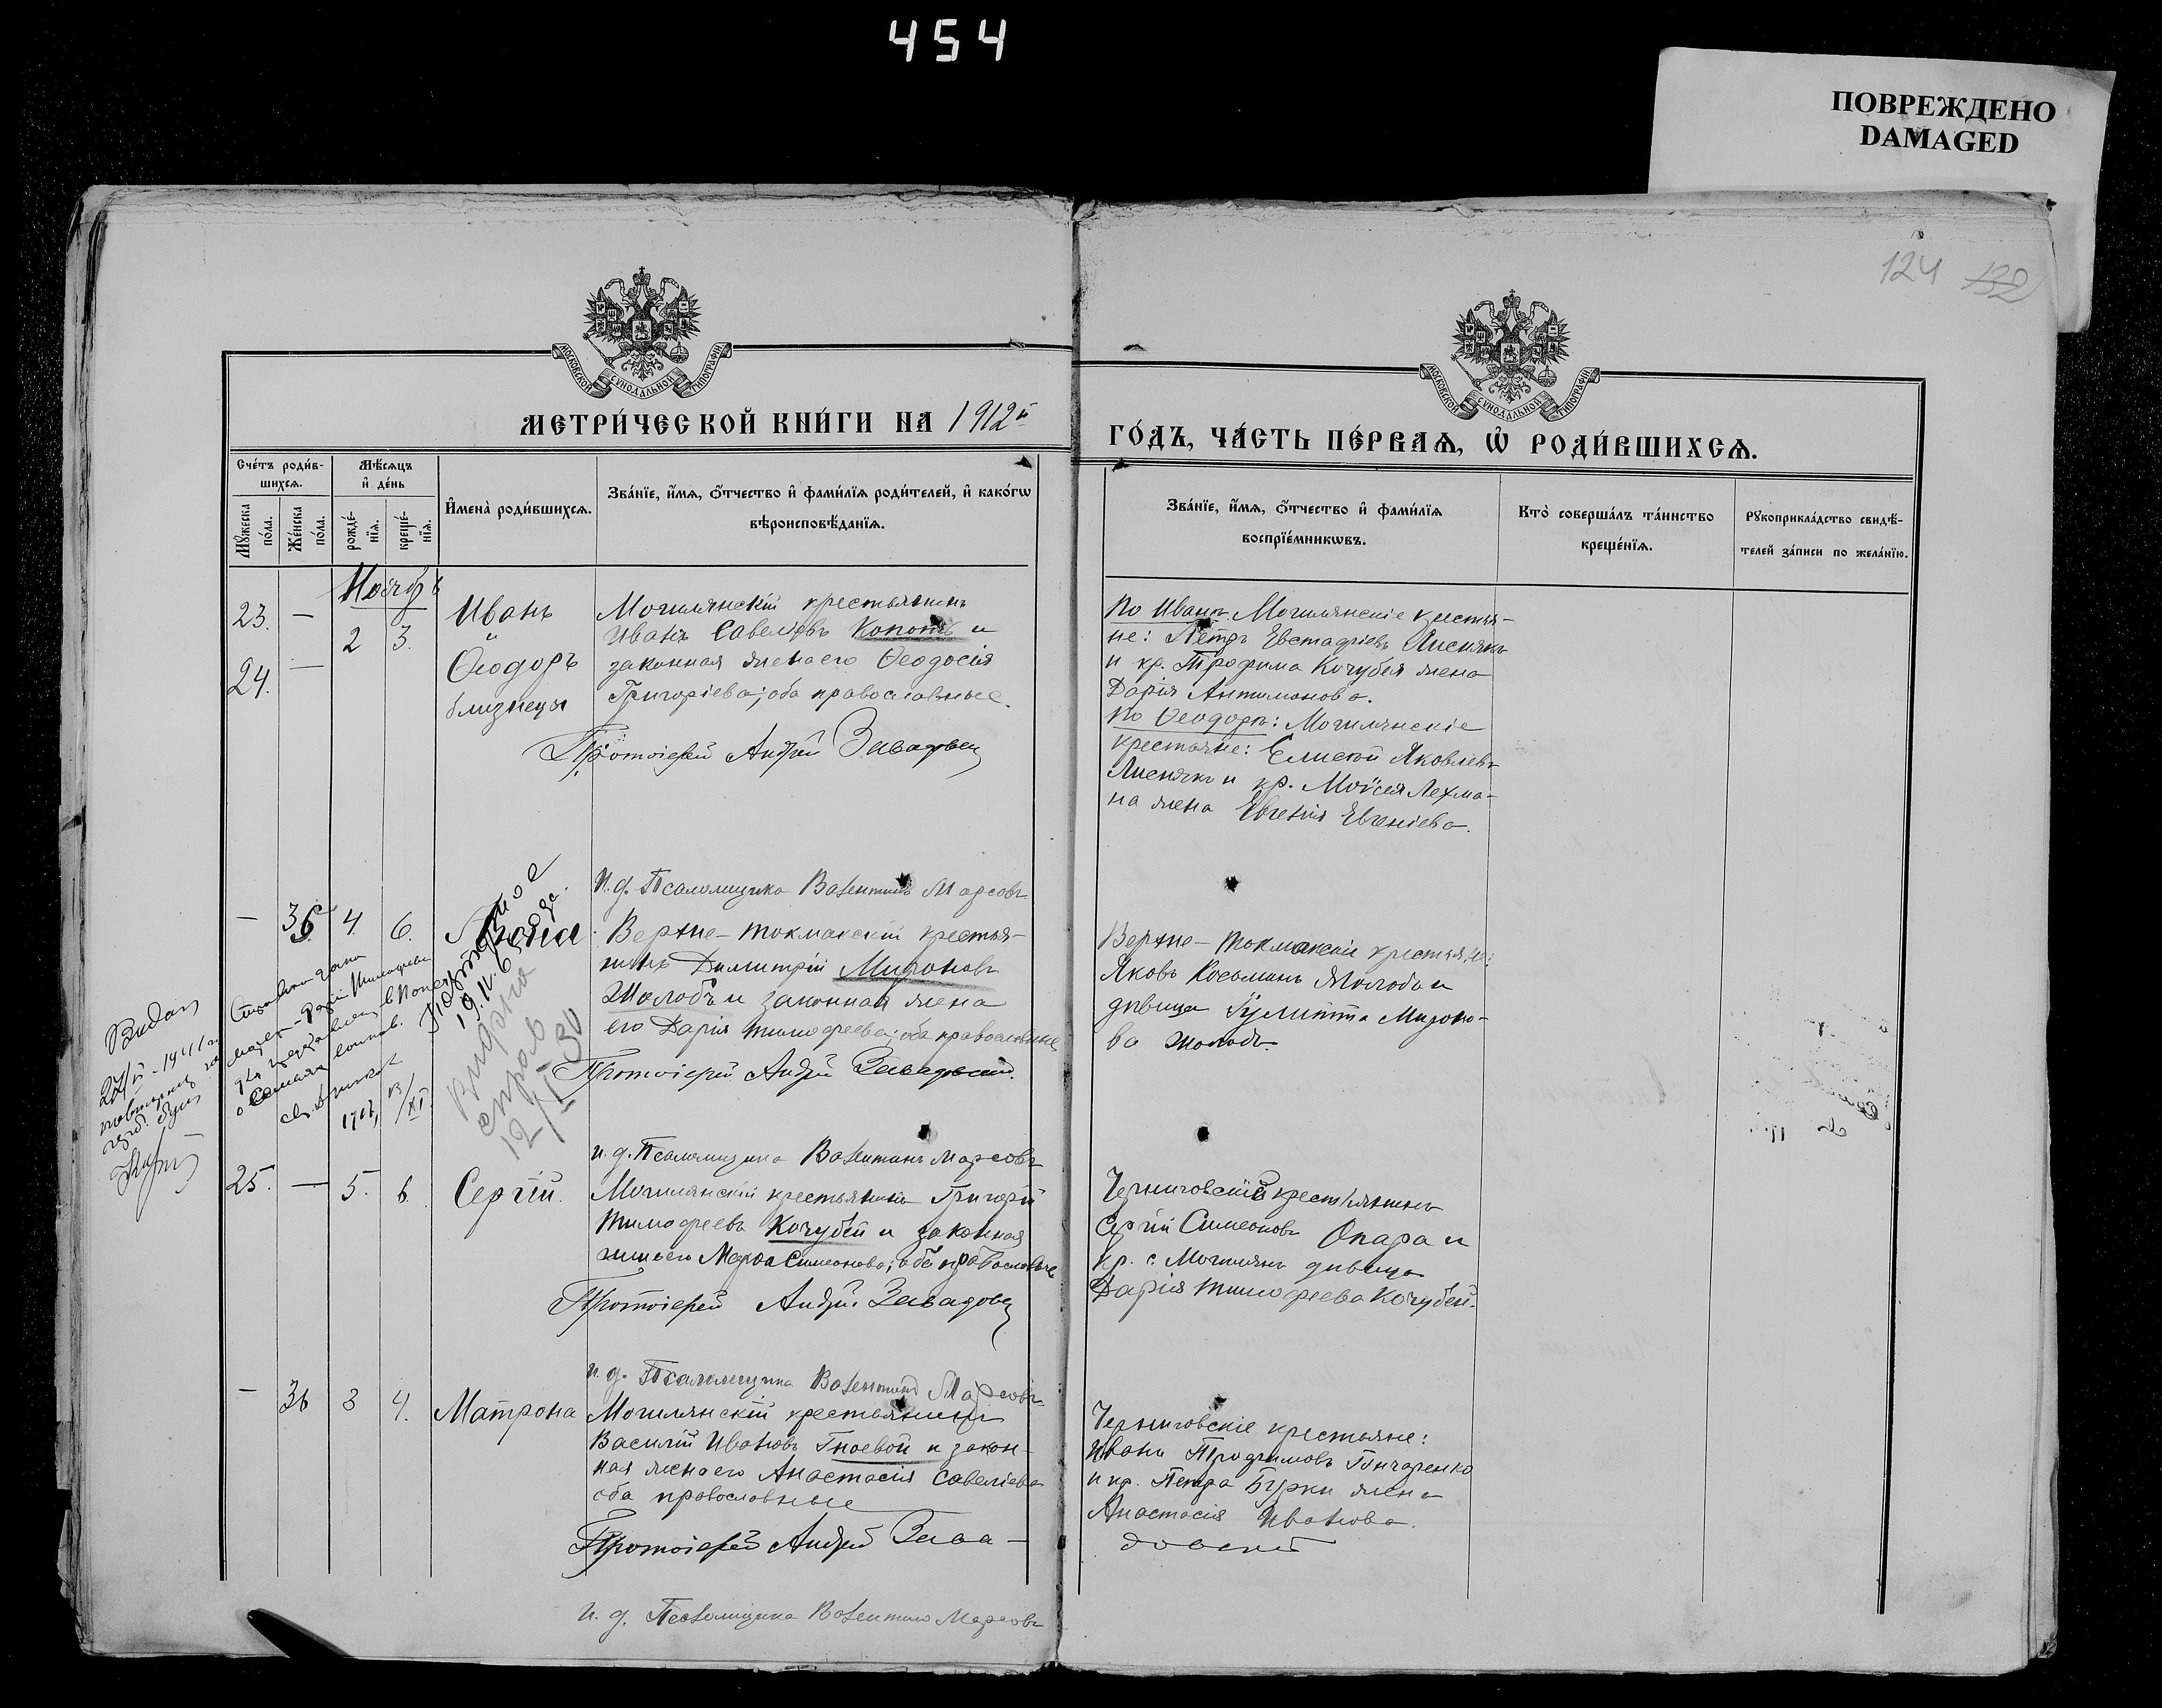 454
ПОВРЕЖДЕНО
DAMAGED
124 132
МОСКОВСКОЙ СѴНОДАЛЬНОЙ ТИПОГРАФІИ
МОСКОВСКОЙ СѴНОДАЛЬНОЙ ТИПОГРАФІИ
МЕТРИ́ЧЕСКОЙ КНИ́ГИ НА 1912й
ГО́ДЪ, ЧА́СТЬ ПЕ́РВАѦ, Ѽ РОДИ́ВШИХСѦ.
Сче́тъ роди́в-
шихсѧ.
Мꙋ́жеска по́ла.
Же́нска по́ла.
Мѣ́сѧцъ
и҆ де́нь
рожде́-
нїѧ.
креще́-
нїѧ.
И҆мена̀ роди́вшихсѧ.
Зва́нїе, и҆́мѧ, ѻ҆́тчество и҆ фами́лїѧ роди́телей, и҆ како́гѡ
вѣроисповѣ́данїѧ.
Зва́нїе, и҆́мѧ, ѻ҆́тчество и҆ фами́лїѧ
воспрїе́мникѡвъ.
Кто̀ соверша́лъ та́инство
креще́нїѧ.
Рꙋкоприкла́дство свидѣ́-
телей за́писи по жела́нїю.
Ноябрь
23. — 2 3.
24. —
Иванъ
и
Ѳеодоръ
близнецы
Могилянскій крестьянинъ
Иванъ Савеліевъ Копотъ и
законная жена его Ѳеодосія
Григоріева; оба православные.
Протоіерей Андрей Завадовск
По Иванѣ: Могилянскіе крестья-
не: Петръ Евстафіевъ Лиснякъ
и кр. Трофима Кочубея жена
Дарія Антимонова.
по Ѳеодорѣ: Могилянскіе
крестьяне: Елисей Яковлевъ
Лиснякъ и кр. Моѵсея Лехма-
на жена Евгенія Евгеніева.
И. д. Псаломщика Валентинъ Марсовъ
— 35 4. 6.
Верхне-Токмакскій крестья-
нинъ Димитрій Мироновъ
Молобъ и законная жена
его Дарія Тимофеева; оба православные
Протоіерей Андрей Завадовскій.
Верхне-Токмакскіе крестьяне:
Яковъ Косьминъ Молоба и
дѣвица Іулитта Мироно-
ва Молобъ.
Повторное
19.II.6
Видано
справ
12/I 30
Видан
27/VI-1941
и. д. Псаломщика Валентинъ Марсовъ
25. — 5. 6. Сергій.
Могилянскій крестьянинъ Григорій
Тимофеевъ Кочубей и законная
жена его Марѳа Симеонова; оба православные
Протоіерей Андрей Завадовск
Черниговскій крестьянинъ
Сергій Симеоновъ Опара и
кр. с. Могилянъ дѣвица
Дарія Тимофеева Кочубей.
и. д. Псаломщика Валентинъ Марсовъ
— 36 3 4. Матрона
Могилянскій крестьянинъ
Василій Ивановъ Гноевой и закон-
ная жена его Анастасія Савеліева
оба православные
Протоіерей Андрей Зава-
довскій
Черниговскіе крестьяне:
Иванъ Трофимовъ Гончаренко
и кр. Петра Бурки жена
Анастасія Иванова.
и. д. Псаломщика Валентинъ Марсовъ